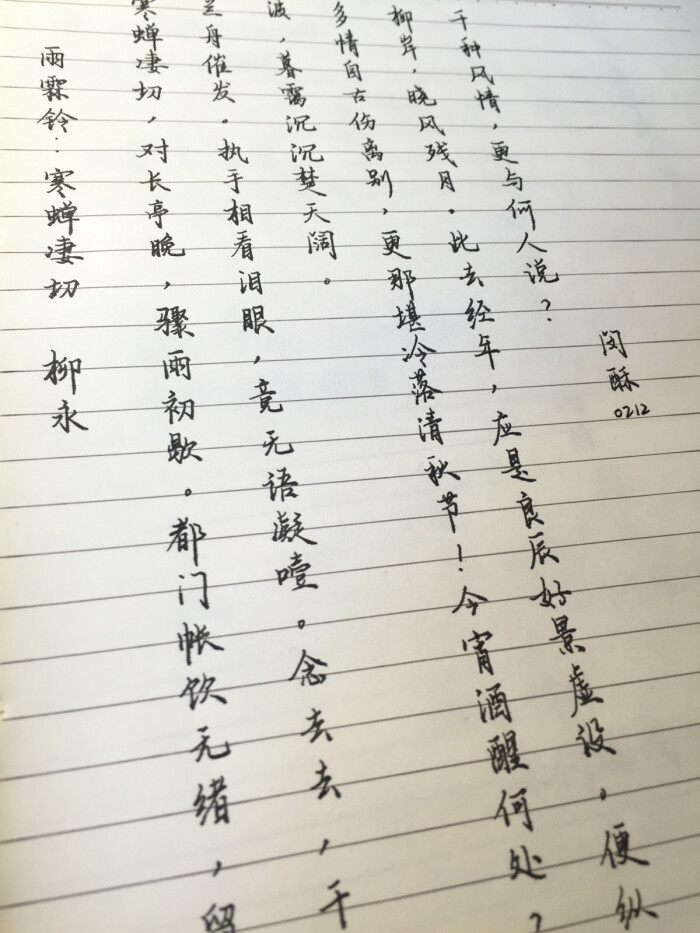 雨霖铃：寒蝉凄切 柳永
寒蝉凄切，对长亭晚，骤雨初歇。都门帐饮无绪，留
兰舟催发。执手相看泪眼，竟无语凝噎。念去去，千
波，暮霭沉沉楚天阔。
多情自古伤离别，更那堪冷落清秋节！今宵酒醒何处？
柳岸，晓风残月。此去经年，应是良辰好景虚设。便纵
千种风情，更与何人说？
闵酥
0212